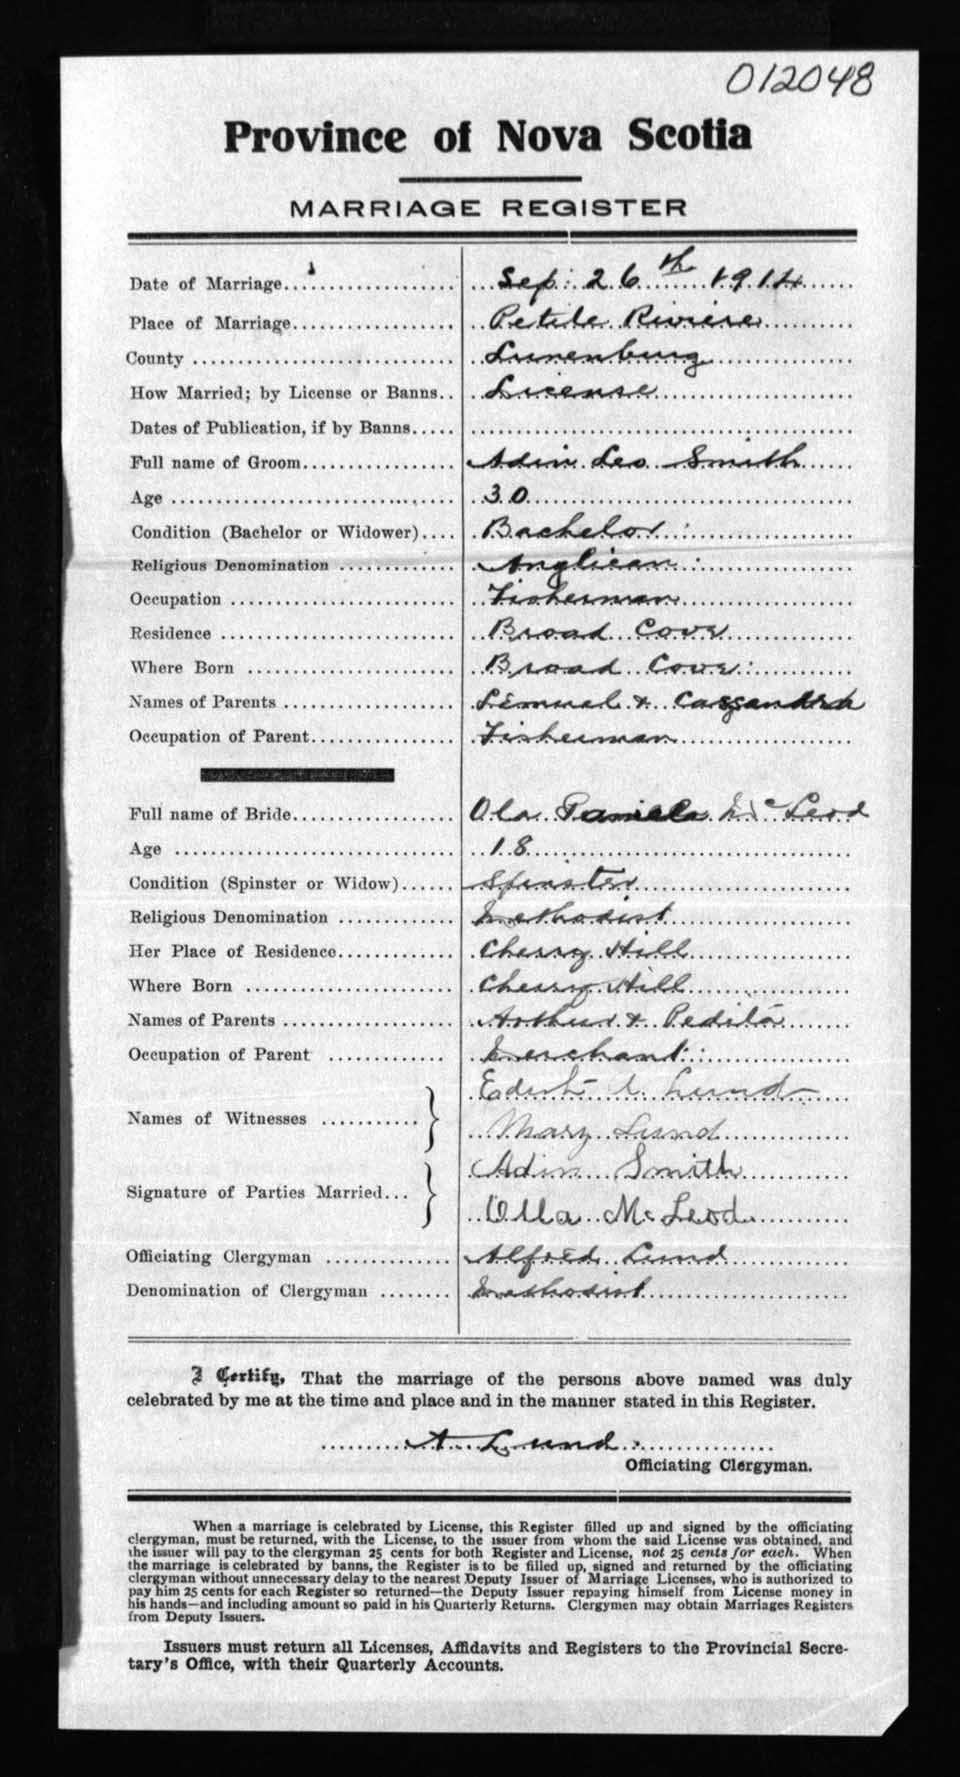 012048
Province of Nova Scotia
MARRIAGE REGISTER
Date of Marriage.................. Sep: 26th 1914
Place of Marriage.................. Petite Riviere
County .................. Lunenburg
How Married; by License or Banns.. License
Dates of Publication, if by Banns.....
Full name of Groom.................. Adin Leo Smith
Age .................. 30
Condition (Bachelor or Widower).... Bachelor
Religious Denomination .................. Anglican
Occupation .................. Fisherman
Residence .................. Broad Cove
Where Born .................. Broad Cove
Names of Parents .................. Lemuel & Cassandra
Occupation of Parent.................. Fisherman
Full name of Bride.................. Ola McLeod
Age .................. 18
Condition (Spinster or Widow)...... Spinster
Religious Denomination .................. Methodist
Her Place of Residence.................. Cherry Hill
Where Born .................. Cherry Hill
Names of Parents .................. Arthur & Pedita
Occupation of Parent .................. Merchant
Edith A. Lund
Names of Witnesses ..................
Mary Lund
Adin Smith
Signature of Parties Married...
Olla McLeod
Officiating Clergyman .................. Alfred Lund
Denomination of Clergyman ........ Methodist
I Certify, That the marriage of the persons above named was duly
celebrated by me at the time and place and in the manner stated in this Register.
A. Lund
Officiating Clergyman.
When a marriage is celebrated by License, this Register filled up and signed by the officiating
clergyman, must be returned, with the License, to the issuer from whom the said License was obtained, and
the issuer will pay to the clergyman 25 cents for both Register and License, not 25 cents for each. When
the marriage is celebrated by banns, the Register is to be filled up, signed and returned by the officiating
clergyman without unnecessary delay to the nearest Deputy Issuer of Marriage Licenses, who is authorized to
pay him 25 cents for each Register so returned—the Deputy Issuer repaying himself from License money in
his hands—and including amount so paid in his Quarterly Returns. Clergymen may obtain Marriages Registers
from Deputy Issuers.
Issuers must return all Licenses, Affidavits and Registers to the Provincial Secre-
tary's Office, with their Quarterly Accounts.